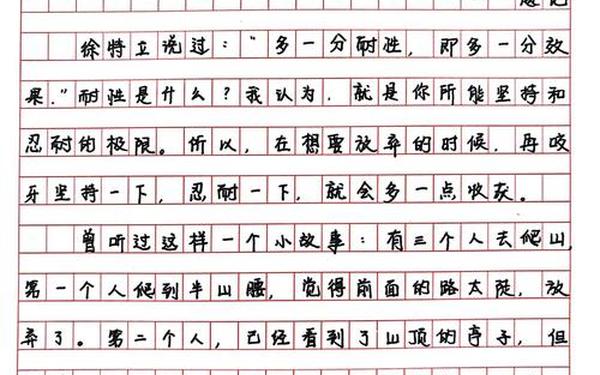 徐特立说过："多一分耐性，即多一分效
果."耐性是什么？我认为，就是你所能坚持和
忍耐的极限。所以，在想要放弃的时候，再咬
牙坚持一下，忍耐一下，就会多一点收获。
曾听过这样一个小故事：有三个人去爬山，
第一个人爬到半山腰，觉得前面的路太陡，放
弃了。第二个人，已经看到了山顶的亭子，但